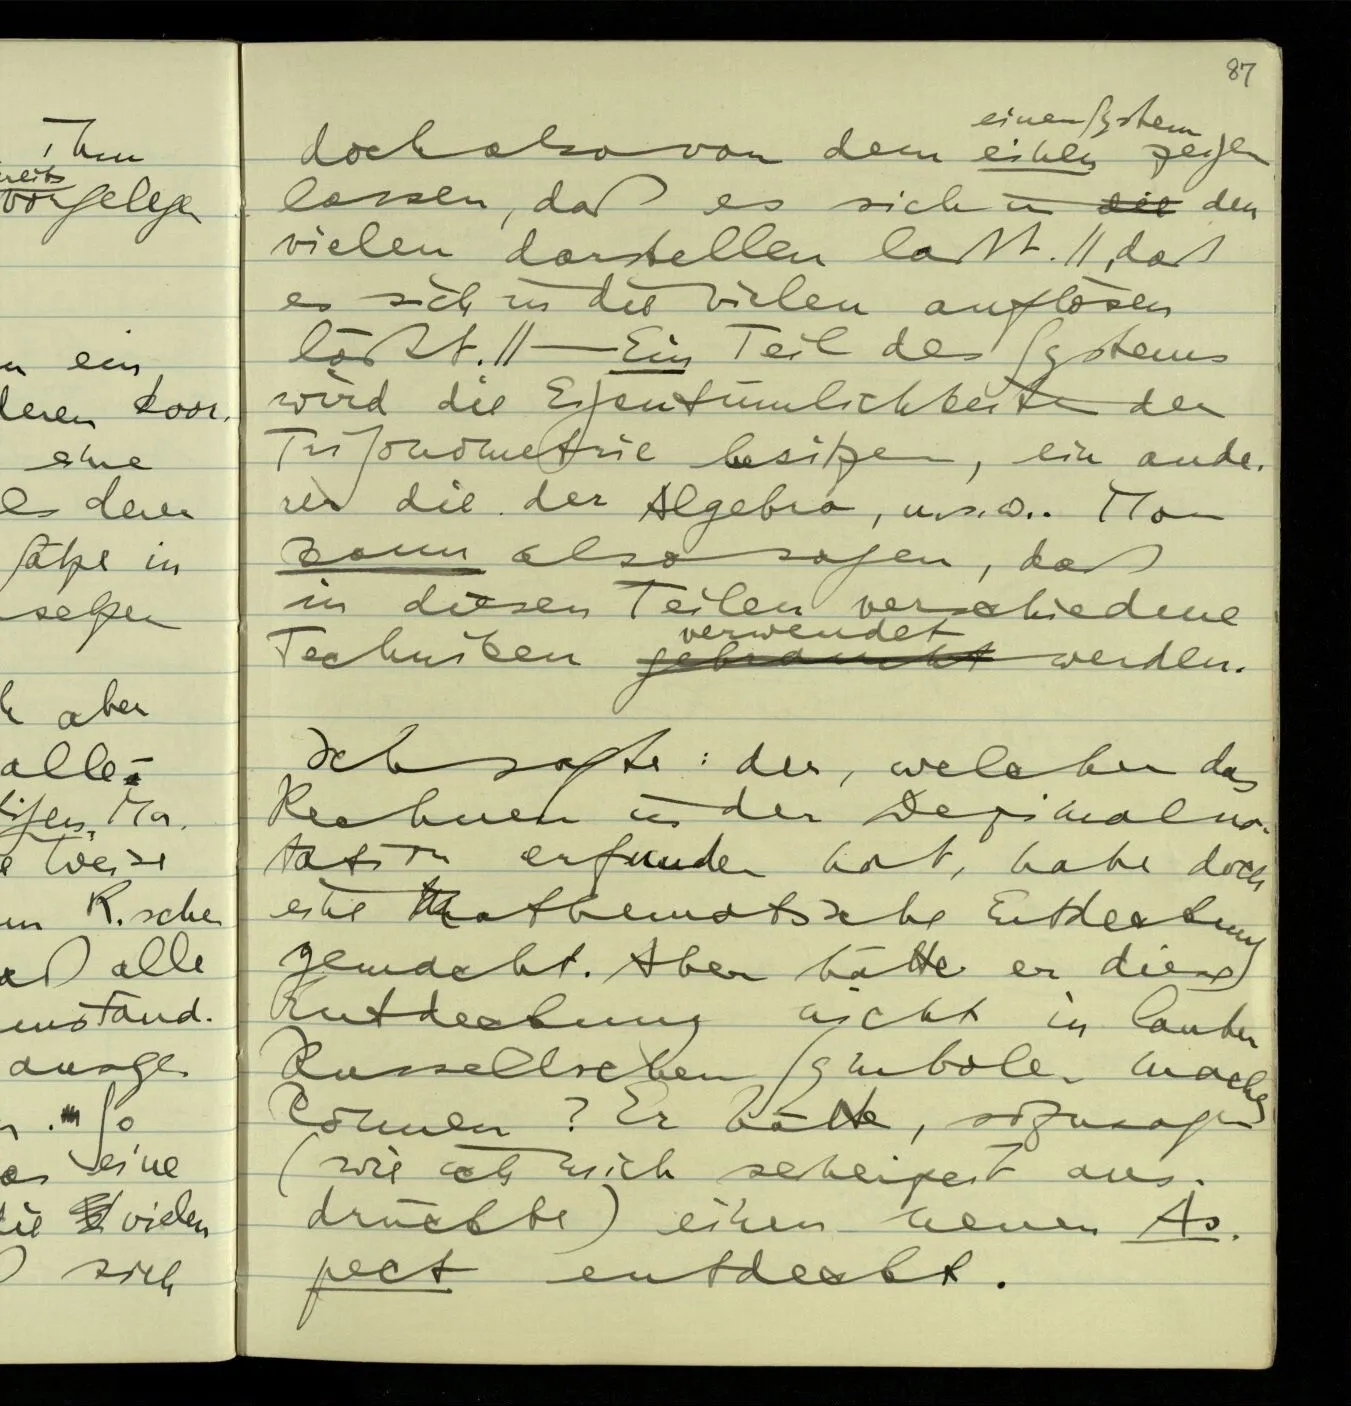 , Ihm
vorgelegen
n ein
deren Koor.
eine
es dann
Sätze in
setzen
h aber
alle-
Ma.
e Weise
m R.schen
aß alle
mstand.
ausge-
So
as eine
die vielen
ß sich
87
einen System
doch also von dem einen zeigen
lassen, daß es sich in die den
vielen darstellen läßt. // , daß
es sich in die vielen auflösen
läßt. // — Ein Teil des Systems
wird die Eigentümlichkeiten der
Trigonometrie besitzen, ein ande-
rer die der Algebra, u.s.w.. Man
kann also sagen, daß
in diesen Teilen verschiedene
verwendet
Techniken gebraucht werden.
Ich sagte: der, welcher das
Rechnen in der Dezimalno-
tation erfunden hat, habe doch
eine Mathematische Entdeckung
gemacht. Aber hätte er diese
Entdeckung nicht in lauter
Russellschen Symbolen machen
können? Er hätte, sozusagen
(wie ich mich seinerzeit aus-
drückte) einen neuen As-
pect entdeckt.